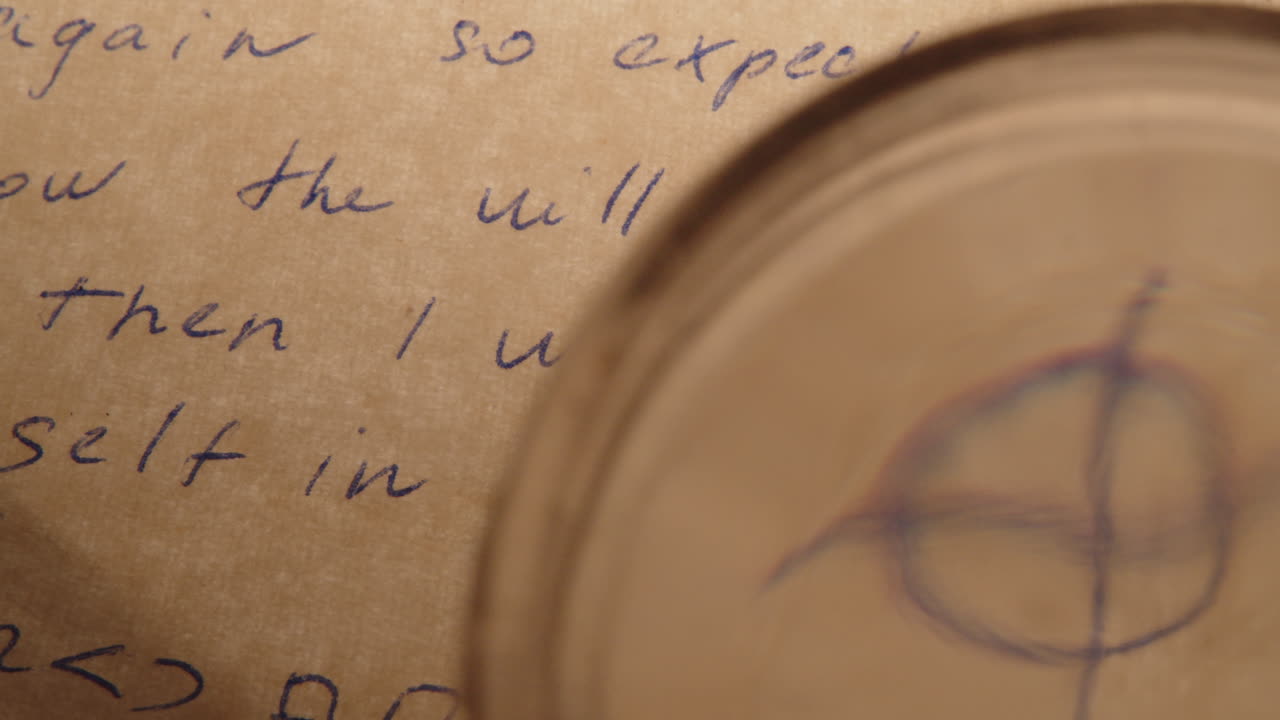 again so expec
ow the will
then I w
self in